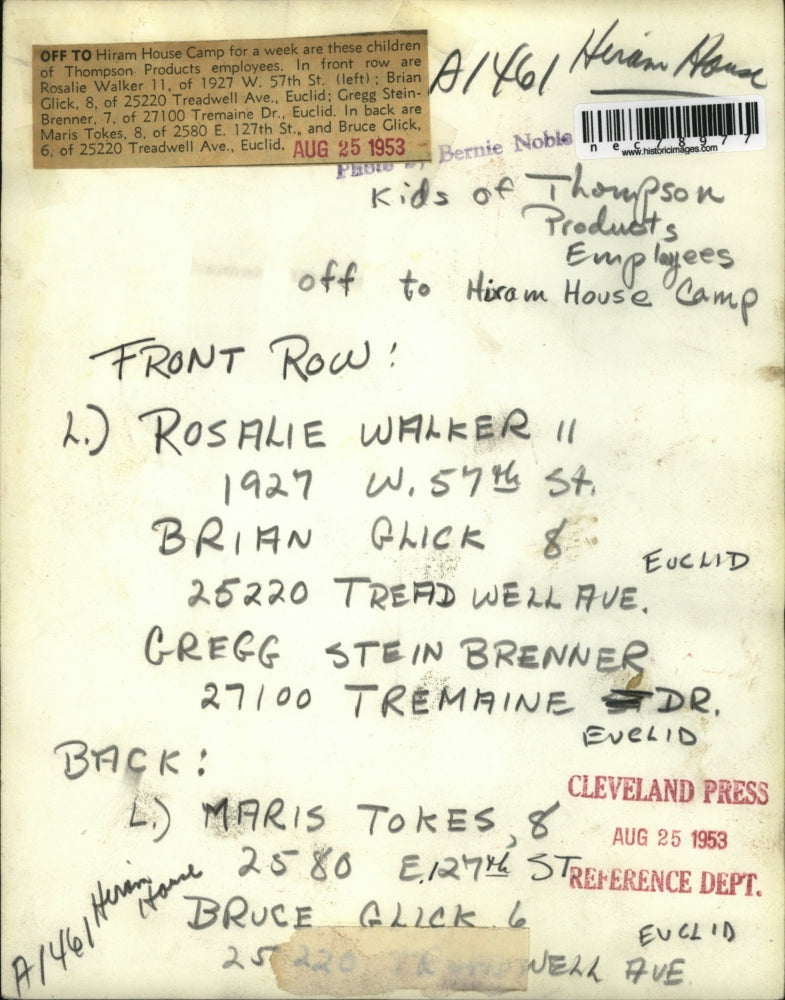 OFF TO Hiram House Camp for a week are these children
of Thompson Products employees. In front row are
Rosalie Walker 11, of 1927 W. 57th St. (left); Brian
Glick, 8, of 25220 Treadwell Ave., Euclid; Gregg Stein-
Brenner, 7, of 27100 Tremaine Dr., Euclid. In back are
Maris Tokes, 8, of 2580 E. 127th St., and Bruce Glick,
6, of 25220 Treadwell Ave., Euclid. AUG 25 1953
A1461 Hiram House
nec78977
www.historicimages.com
Photo by Bernie Noble
Kids of Thompson
Products
Employees
off to Hiram House Camp
FRONT ROW:
L.) ROSALIE WALKER 11
1927 W. 57th St.
BRIAN GLICK 8
EUCLID
25220 TREADWELL AVE.
GREGG STEIN BRENNER
27100 TREMAINE DR.
EUCLID
BACK:
L.) MARIS TOKES, 8
2580 E. 127th ST
BRUCE GLICK 6
EUCLID
25220 TREADWELL AVE
CLEVELAND PRESS
AUG 25 1953
REFERENCE DEPT.
A1461 Hiram House